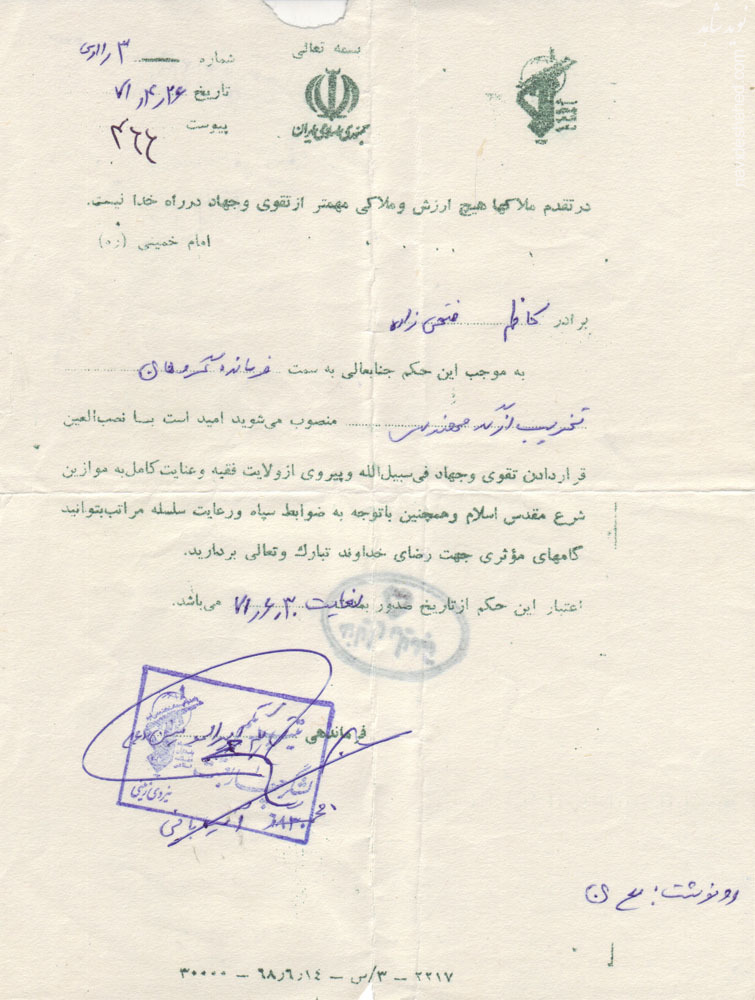 بسمه تعالی
جمهوری اسلامی ایران
شماره ۳
تاریخ ۷۱٫۴٫۲۶
پیوست
۴۶۶
در تقدم ملاکها هیچ ارزش و ملاکی مهمتر از تقوی و جهاد در راه خدا نیست.
امام خمینی (ره)
برادر کاظم فتحی زاده
به موجب این حکم جنابعالی به سمت فرمانده
تخریب مهندسی منصوب می‌شوید امید است بسا نصب‌العین
قراردادن تقوی و جهاد فی‌سبیل‌الله و پیروی از ولایت فقیه و عنایت کامل به موازین
شرع مقدس اسلام و همچنین باتوجه به ضوابط سپاه و رعایت سلسله مراتب بتوانید
گامهای مؤثری جهت رضای خداوند تبارك و تعالی بردارید.
اعتبار این حکم از تاریخ صدور بمدت لغایت ۷۱٫۶٫۳۰ می‌باشد.
فرماندهی
لشگر
نیروی زمینی
رونوشت:
۲۲۱۷ – ۳/س – ۶۸٫۶٫۱۴ – ۳۰۰۰۰